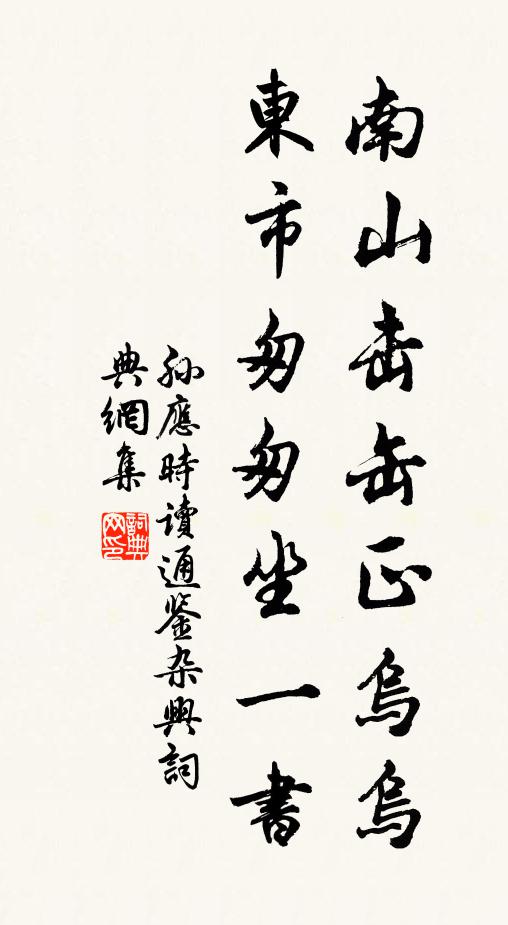 南山击缶正烏烏
東市匆匆坐一書
孙應時讀通鉴杂興詞
典網集
詞典网印